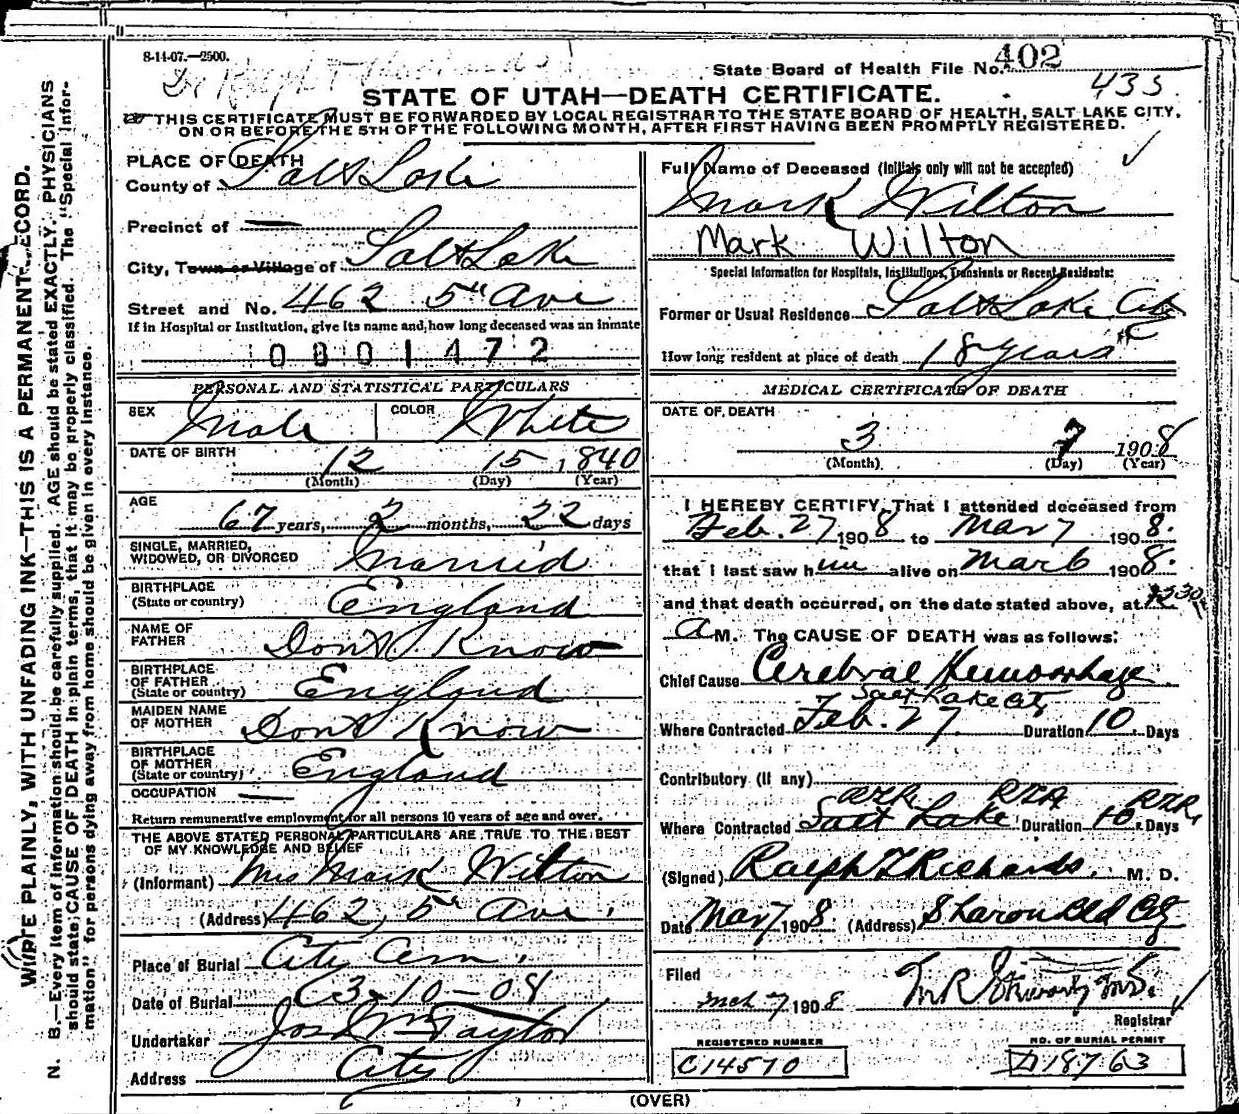 8-14-07.—2500.
State Board of Health File No. 402
435
STATE OF UTAH—DEATH CERTIFICATE.
THIS CERTIFICATE MUST BE FORWARDED BY LOCAL REGISTRAR TO THE STATE BOARD OF HEALTH, SALT LAKE CITY,
ON OR BEFORE THE 5TH OF THE FOLLOWING MONTH, AFTER FIRST HAVING BEEN PROMPTLY REGISTERED.
WRITE PLAINLY, WITH UNFADING INK—THIS IS A PERMANENT RECORD.
N. B.—Every item of information should be carefully supplied. AGE should be stated EXACTLY. PHYSICIANS
should state CAUSE OF DEATH in plain terms, that it may be properly classified. The "Special Infor-
mation" for persons dying away from home should be given in every instance.
PLACE OF DEATH
County of Salt Lake
Precinct of —
City, Town or Village of Salt Lake
Street and No. 462 5th Ave
If in Hospital or Institution, give its name and how long deceased was an inmate
0801472
PERSONAL AND STATISTICAL PARTICULARS
SEX Male COLOR White
DATE OF BIRTH 12 15 1840
(Month) (Day) (Year)
AGE
67 years, 2 months, 22 days
SINGLE, MARRIED,
WIDOWED, OR DIVORCED Married
BIRTHPLACE
(State or country) England
NAME OF
FATHER Dont Know
BIRTHPLACE
OF FATHER
(State or country) England
MAIDEN NAME
OF MOTHER Dont Know
BIRTHPLACE
OF MOTHER
(State or country) England
OCCUPATION —
Return remunerative employment for all persons 10 years of age and over.
THE ABOVE STATED PERSONAL PARTICULARS ARE TRUE TO THE BEST
OF MY KNOWLEDGE AND BELIEF
(Informant) Mrs Mark Wilton
(Address) 462, 5th Ave.
Place of Burial City Cem.
Date of Burial 3-10-08
Undertaker Jos Wm Taylor
Address City
Full Name of Deceased (Initials only will not be accepted)
Mark Wilton
Mark Wilton
Special Information for Hospitals, Institutions, Transients or Recent Residents:
Former or Usual Residence Salt Lake City
How long resident at place of death 18 years
MEDICAL CERTIFICATE OF DEATH
DATE OF DEATH
3 7 1908
(Month) (Day) (Year)
I HEREBY CERTIFY, That I attended deceased from
Feb. 27 1908 to Mar 7 1908.
that I last saw him alive on Mar 6 1908.
and that death occurred, on the date stated above, at
A M. The CAUSE OF DEATH was as follows:
Chief Cause Cerebral Hemorrhage
Salt Lake City
Where Contracted Feb. 27. Duration 10 Days
Contributory (if any)
RTR RTR RTR
Where Contracted Salt Lake Duration 10 Days
(Signed) Ralph T Richards. M. D.
Date Mar 7 1908 (Address) Sharon Bld City
Filed
Mch 7 1908
Registrar
REGISTERED NUMBER
C14570
NO. OF BURIAL PERMIT
D18763
(OVER)